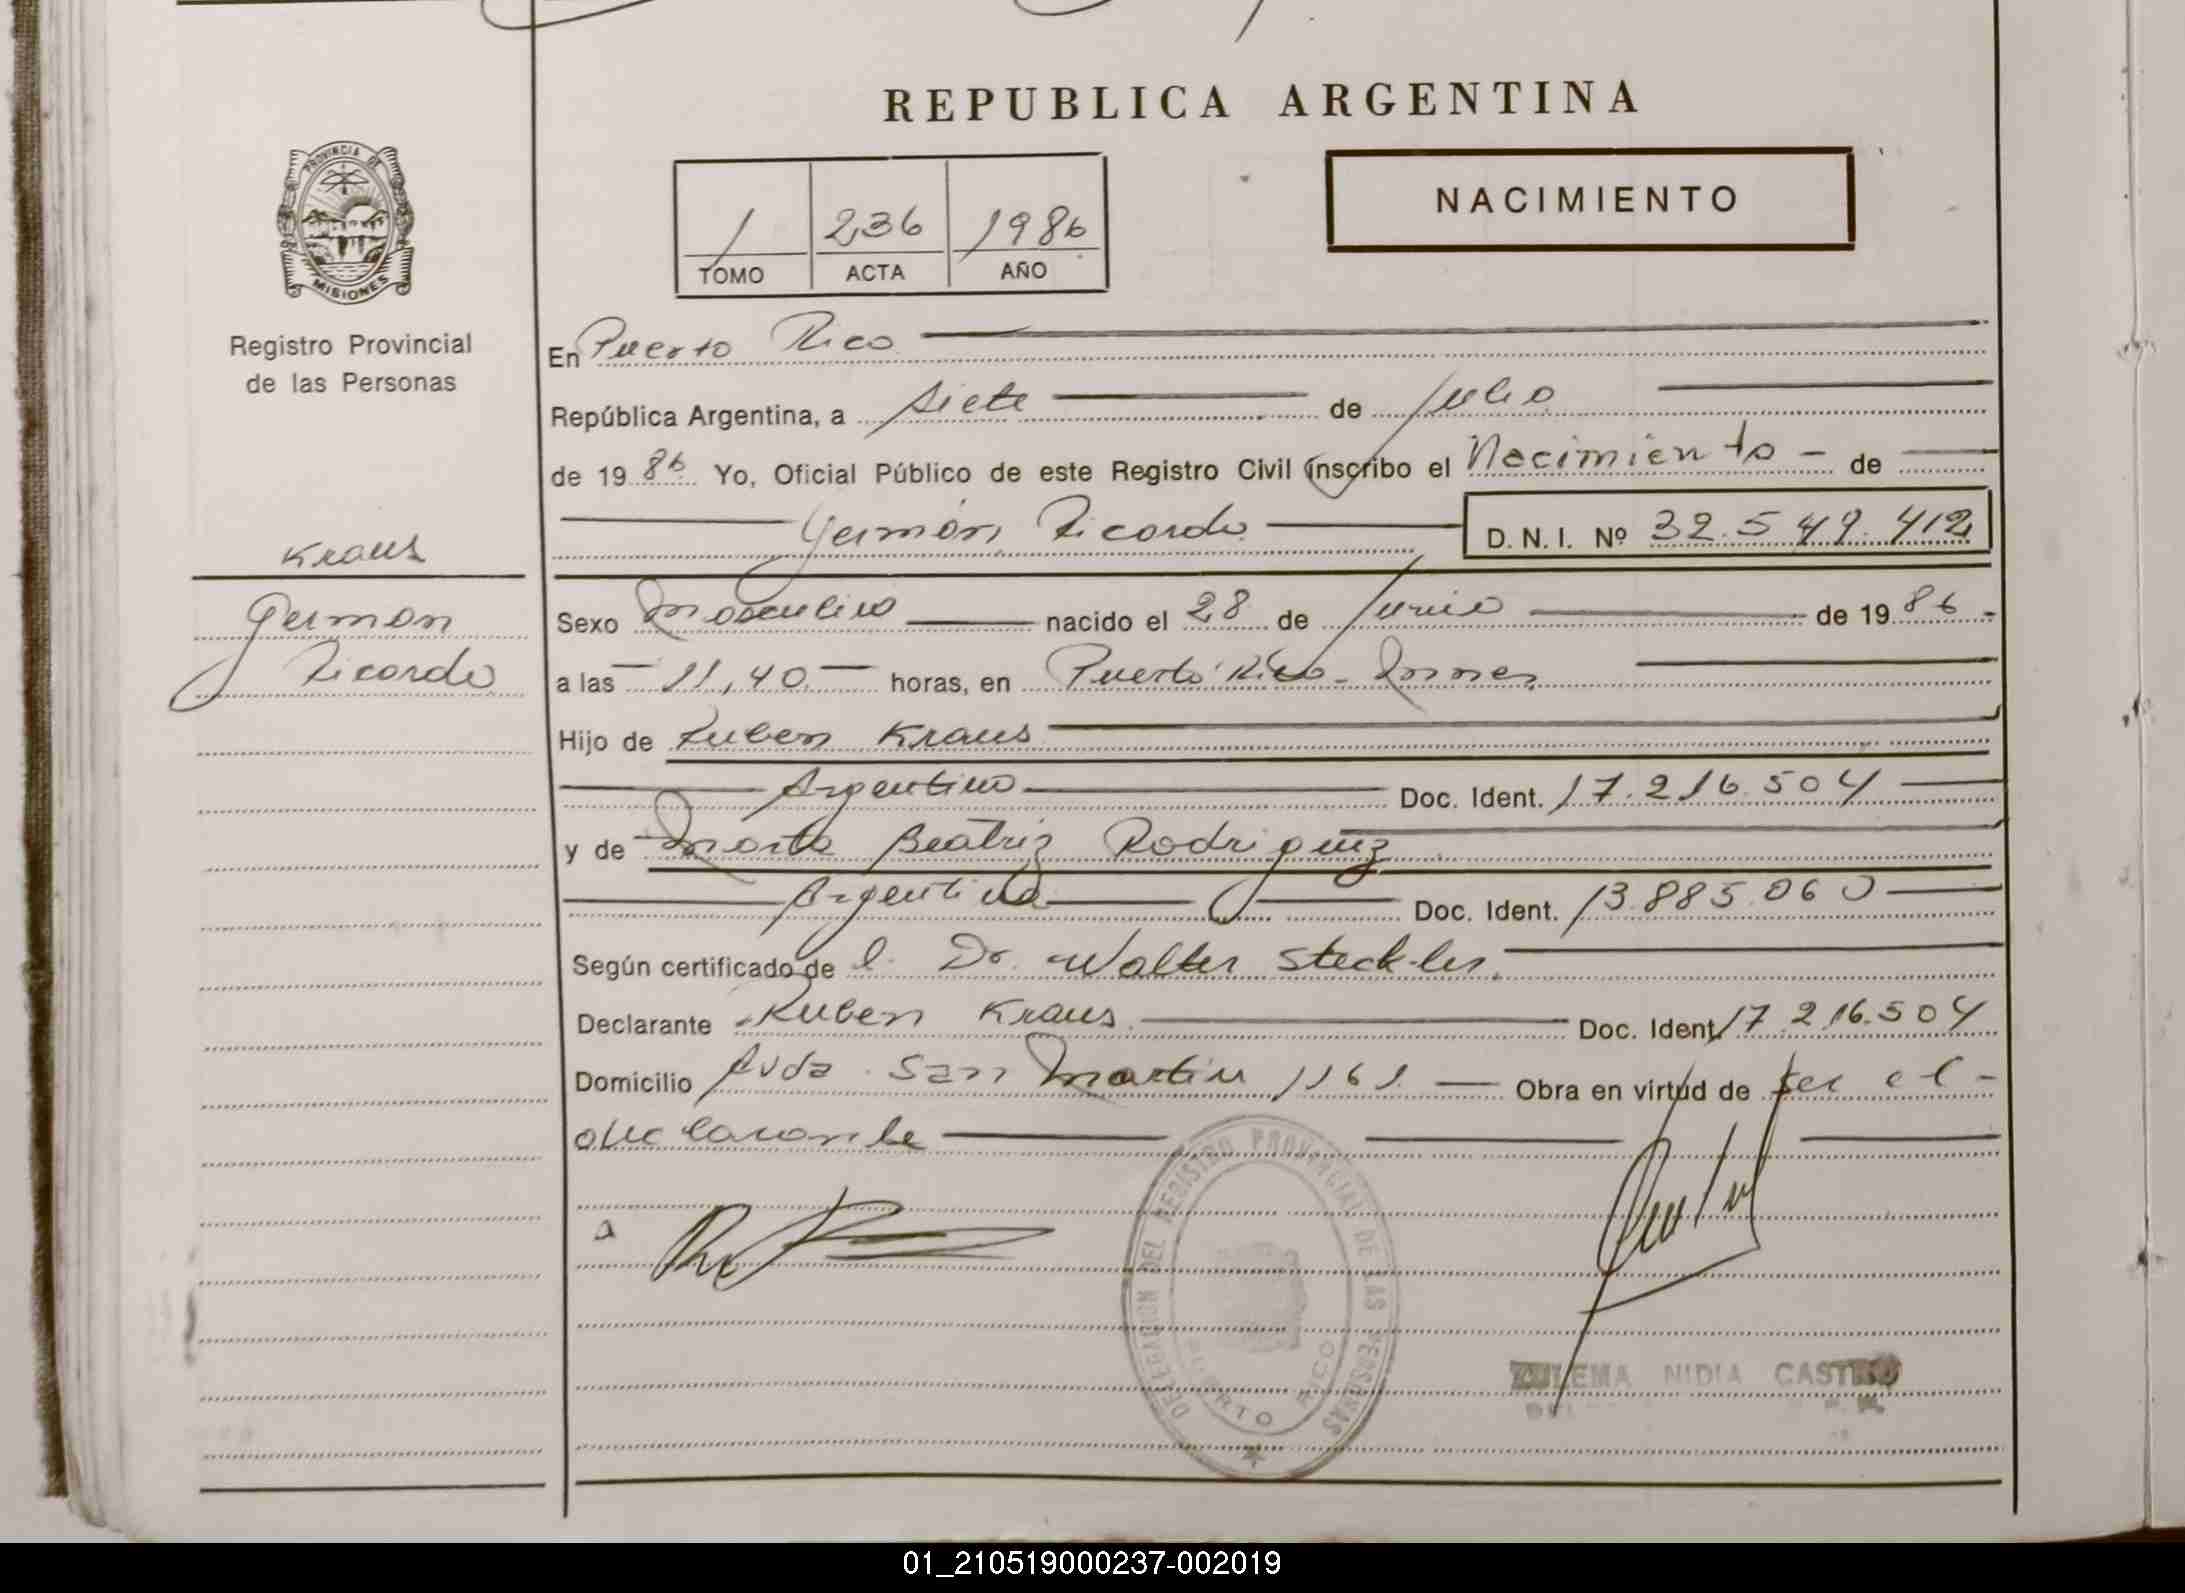 REPUBLICA ARGENTINA
PROVINCIA DE
MISIONES
Registro Provincial
de las Personas
1 236 1986
TOMO ACTA AÑO
NACIMIENTO
En Puerto Rico
República Argentina, a siete de Julio
de 19 86 Yo, Oficial Público de este Registro Civil inscribo el Nacimiento - de
Germán Ricardo D. N. I. Nº 32.549.412
Kraus
German
Ricardo
Sexo Masculino nacido el 28 de Junio de 19 86
a las 11,40 horas, en Puerto Rico - Mnes
Hijo de Ruben Kraus
Argentino Doc. Ident. 17.216.504
y de Marta Beatriz Rodriguez
Argentina Doc. Ident. 13.885.060
Según certificado de l Dr. Walter Steckler
Declarante Ruben Kraus Doc. Ident 17.216.504
Domicilio Avda. San Martin 1161 Obra en virtud de ser el -
declarante
DELEGACION DEL REGISTRO PROVINCIAL DE LAS PERSONAS
PUERTO RICO
ZULEMA NIDIA CASTRO
01_210519000237-002019